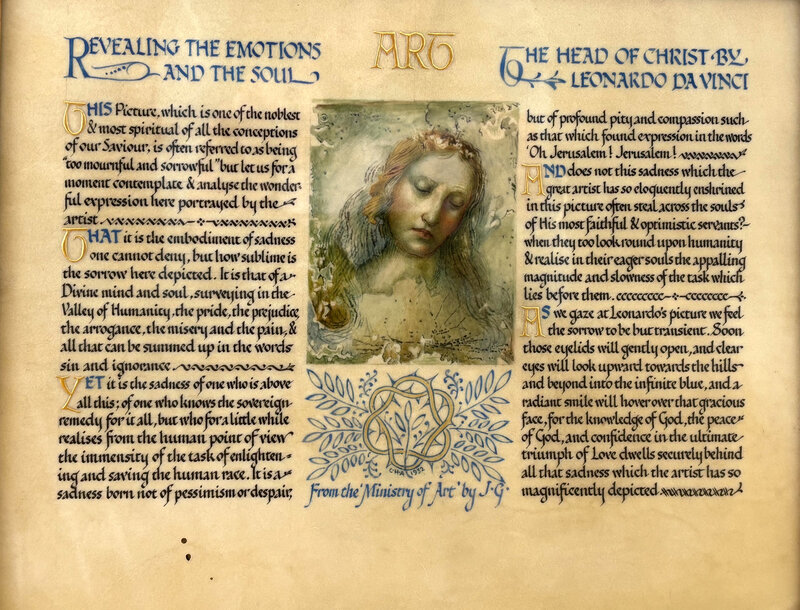 REVEALING THE EMOTIONS
AND THE SOUL
ART
THE HEAD OF CHRIST·BY
LEONARDO DA VINCI
THIS Picture, which is one of the noblest
& most spiritual of all the conceptions
of our Saviour, is often referred to as being
"too mournful and sorrowful" but let us for a
moment contemplate & analyse the wonder-
ful expression here portrayed by the
artist.
THAT it is the embodiment of sadness
one cannot deny, but how sublime is
the sorrow here depicted. It is that of a
Divine mind and soul, surveying in the
Valley of Humanity, the pride, the prejudice,
the arrogance, the misery and the pain, &
all that can be summed up in the words
sin and ignorance
YET it is the sadness of one who is above
all this; of one who knows the sovereign
remedy for it all, but who for a little while
realises from the human point of view
the immensity of the task of enlighten-
ing and saving the human race. It is a
sadness born not of pessimism or despair,
but of profound pity and compassion such
as that which found expression in the words
'Oh, Jerusalem! Jerusalem!
AND does not this sadness which the
great artist has so eloquently enshrined
in this picture often steal across the souls
of His most faithful & optimistic servants?
when they too look round upon humanity
& realise in their eager souls the appalling
magnitude and slowness of the task which
lies before them.
AS we gaze at Leonardo's picture we feel
the sorrow to be but transient. Soon
those eyelids will gently open, and clear
eyes will look upward towards the hills
and beyond into the infinite blue, and a
radiant smile will hover over that gracious
face, for the knowledge of God, the peace
of God, and confidence in the ultimate
triumph of Love dwells securely behind
all that sadness which the artist has so
magnificently depicted
From the 'Ministry of Art' by J·G·